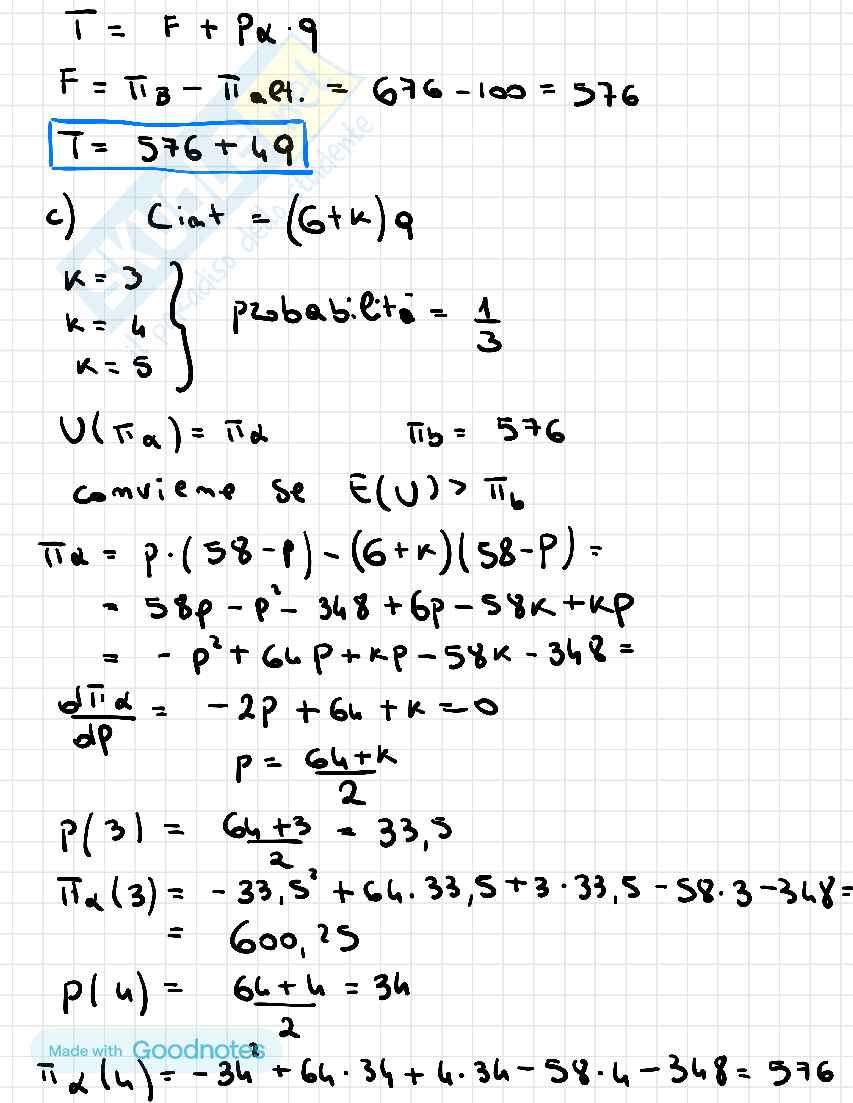 T = F + Pα · q
F = πB - πaet. = 676 - 100 = 576
T = 576 + 4q
c) Cint = (6+k)q
k = 3
k = 4
k = 5
probabilità = 1/3
U(πα) = πα πb = 576
conviene se E(U) > πb
πα = p·(58-p) - (6+k)(58-P) =
= 58p - p² - 348 + 6p - 58k + kp
= - p² + 64p + kp - 58k - 348 =
dπα/dp = -2p + 64 + k = 0
p = (64+k)/2
P(3) = (64+3)/2 = 33,5
πα(3) = -33,5² + 64·33,5 + 3·33,5 - 58·3 - 348 =
= 600,25
P(4) = (64+4)/2 = 34
Made with Goodnotes
πα(4) = -34² + 64·34 + 4·34 - 58·4 - 348 = 576